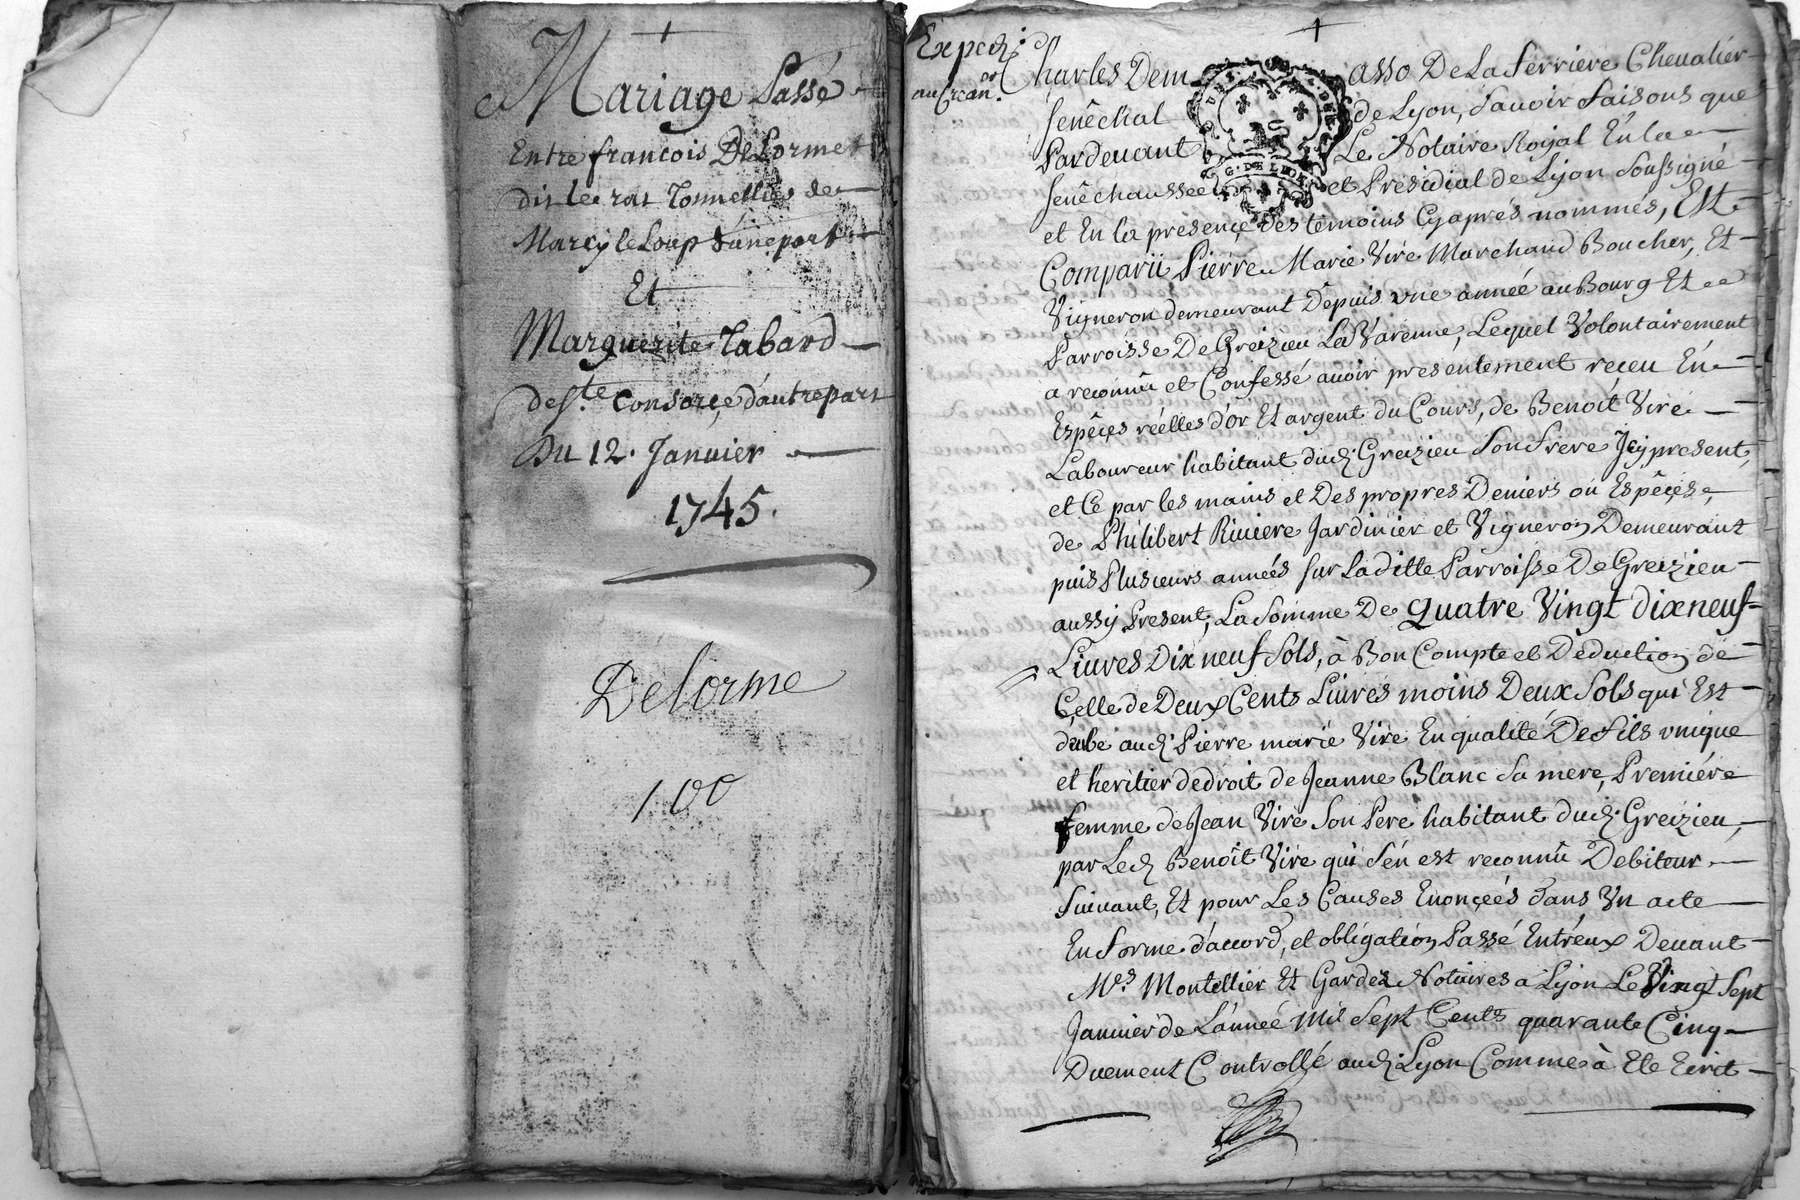 Mariage Passé
Entre francois DeLorme
dit le ras Tonnellier de
Marcy le Loup d'une part
Et
Marguerite Tabard
des.te Consorce d'autre part
Du 12. Januier
1745.
Delorme
100
Exped.
au Crean.er
Charles Demasso De La ferriere Cheualier
senêchal de Lyon, sauoir faisons que
Pardeuant Le Notaire Royal En la
senêchaussee et Presidial de Lyon soussigné
et En la présence des témoins Cyaprés nommés, Est
Comparü Pierre Marie Viré Marchand Boucher, Et
Vigneron demeurant Dépuis vne année au Bourg Et
Parroisse De Greizieu La Varenne, Lequel Volontairement
a reconnû et Confessé auoir presentement receu En
Espêçes réelles d'or Et argent du Cours, de Benoit Viré
Laboureur habitant dud. Greizieu son frere Jcy present,
et Ce par les mains et Des propres Deniers ou Espêçes
de Philibert Riuiere Jardinier et Vigneron Demeurant
puis Plusieurs années sur Laditte Parroisse De Greizieu
aussy Present, La somme De quatre Vingt dix neuf
Liures Dix neuf sols, à Bon Compte et Déduction de
Çelle de Deux Cents Liures moins Deux sols qui Est
dûbe aud. Pierre marie Viré En qualité De fils vnique
et heritier de droit de Jeanne Blanc sa mere, Premiére
femme de Jean Viré son Pere habitant dud. Greizieu,
par Led. Benoît Viré qui s'én est reconnû Debiteur
suiuant, Et pour Les Causes Enonçéés dans Vn acte
En forme d'accord, et obligation Passé Entréux Deuant
Mes. Montellier Et Gardes Notaires a Lyon Le Vingt Sept
Januier de L'année Mil sept Cents quarante Cinq
Duement Controllé aud. Lyon Comme à Eté Ecrit